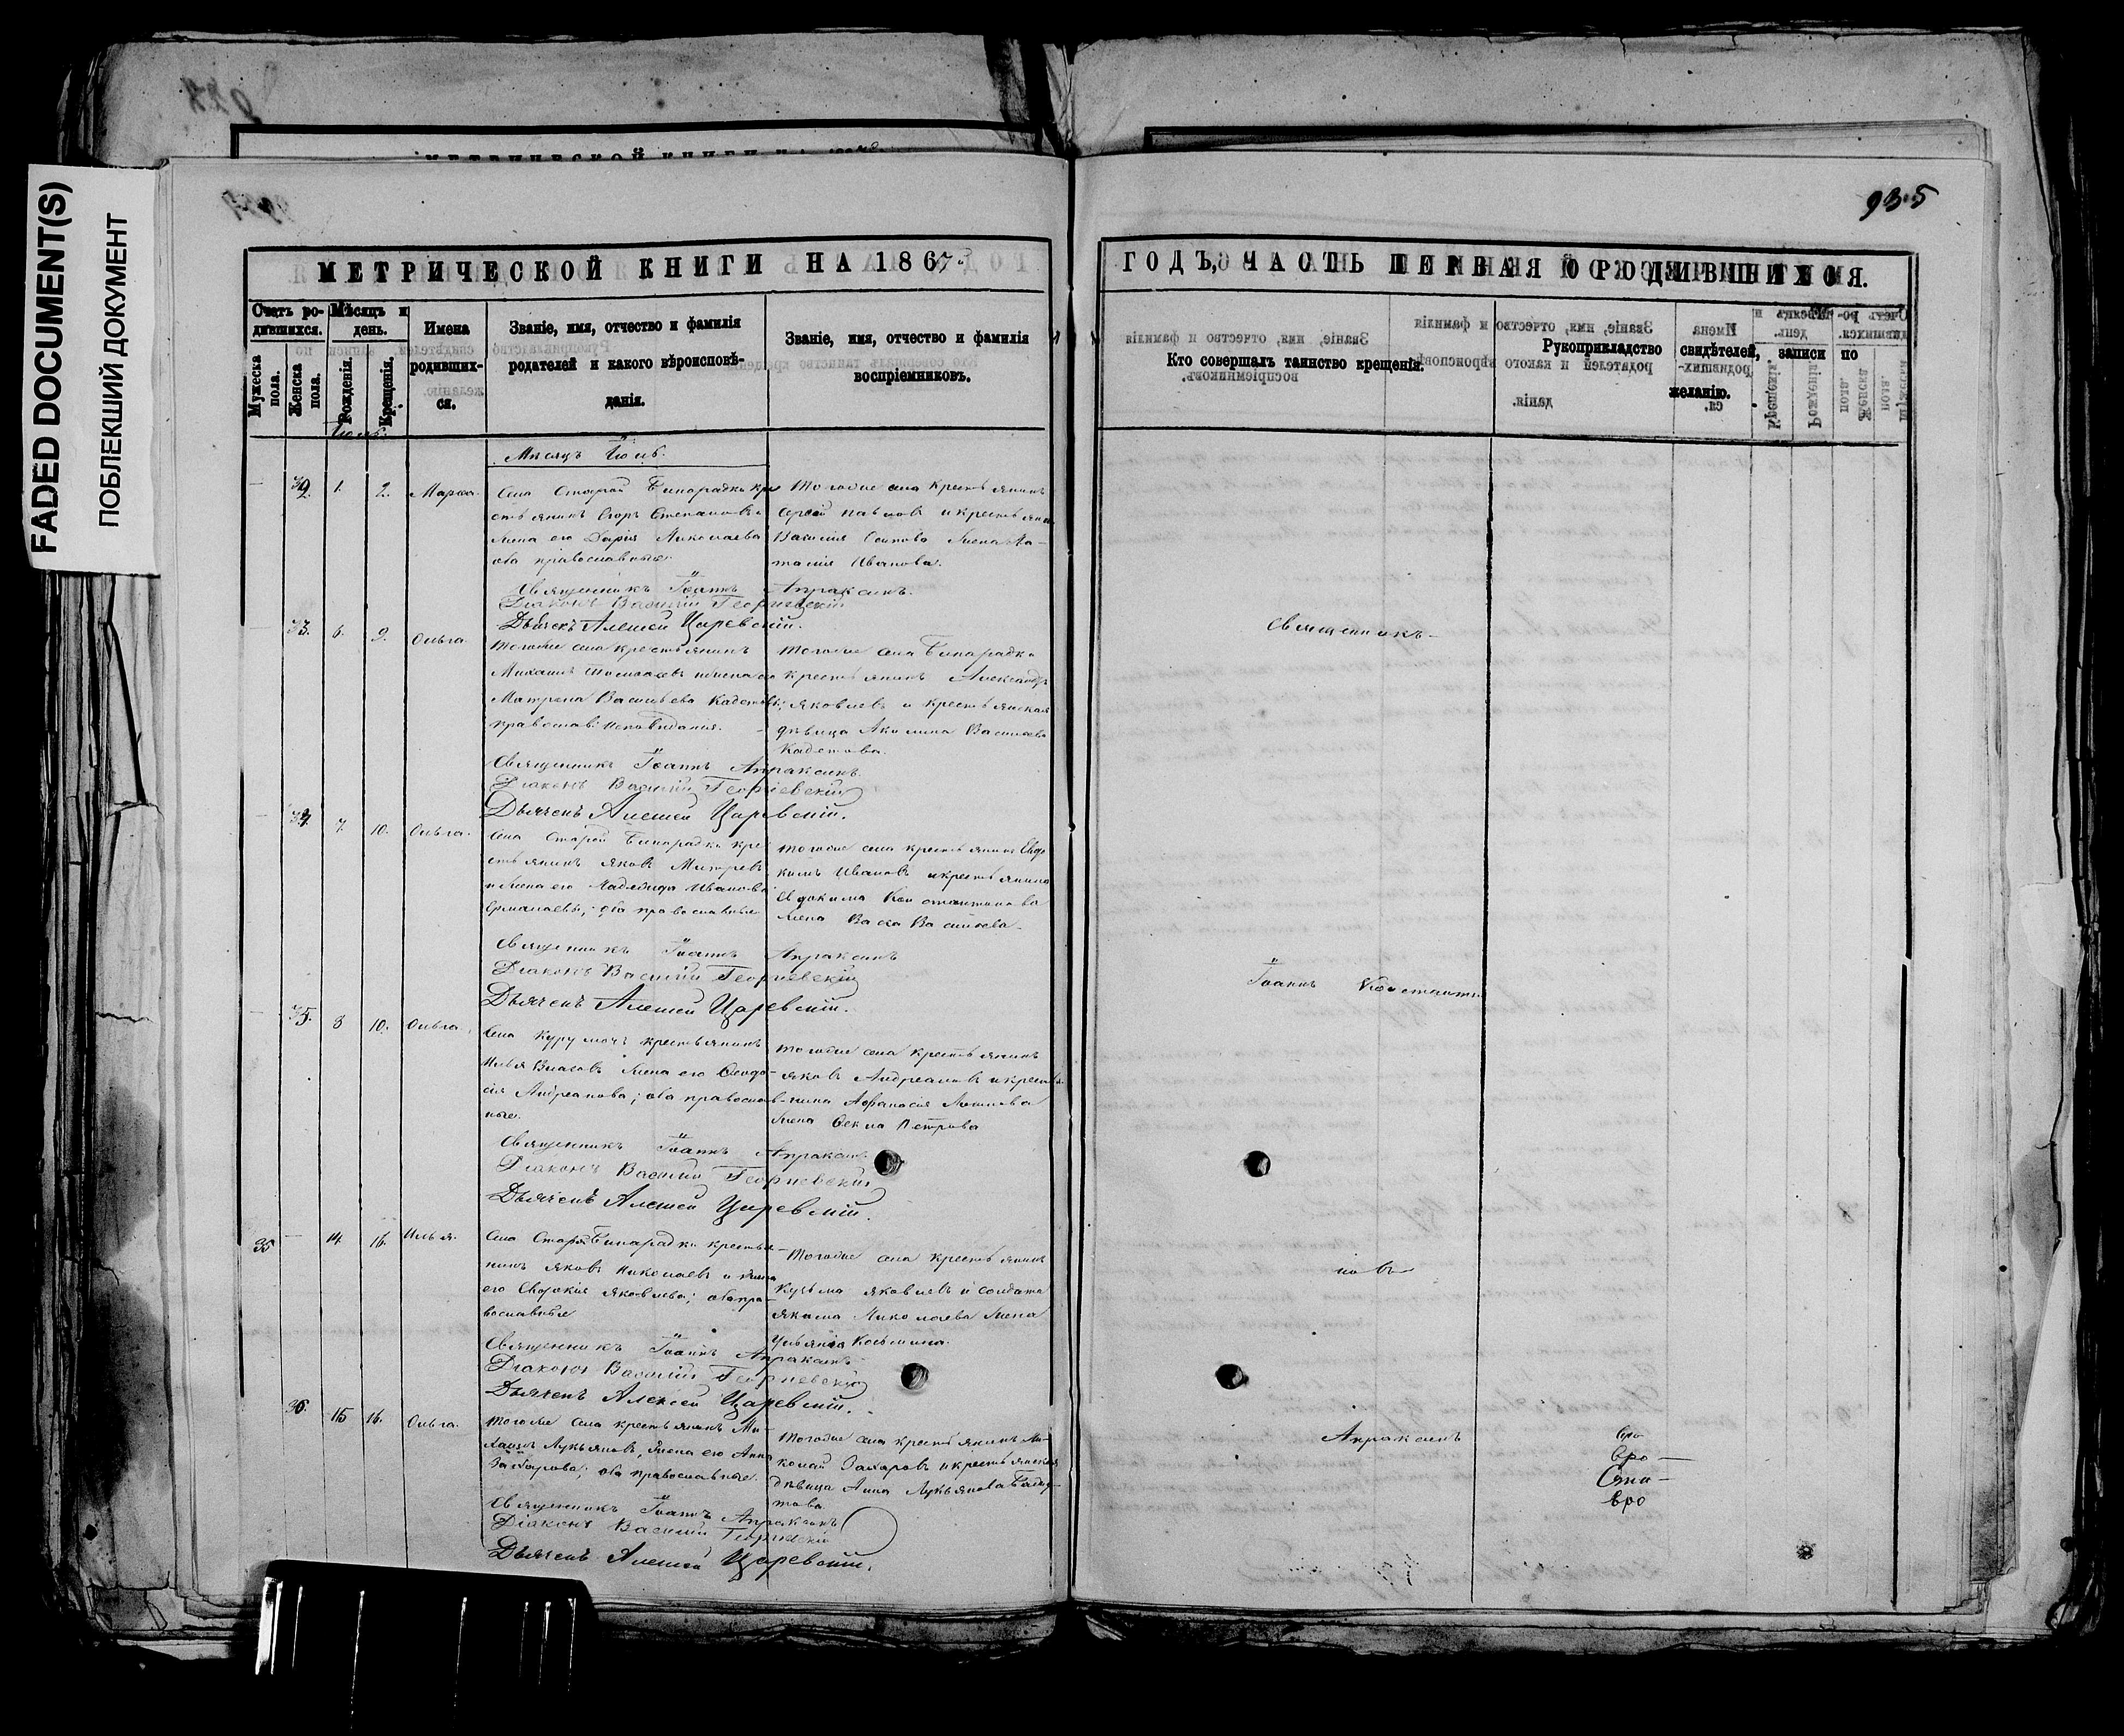 FADED DOCUMENT(S)
ПОБЛЕКШИЙ ДОКУМЕНТ
935
МЕТРИЧЕСКОЙ КНИГИ НА 1867
ГОДЪ, ЧАСТЬ ПЕРВАЯ О РОДИВШИХСЯ.
Счетъ ро-
дившихся.
Мужеска пола.
Женска пола.
Мѣсяцъ и
день.
Рожденія.
Крещенія.
Имена
родивших-
ся.
Званіе, имя, отчество и фамилія
родителей и какого вѣроисповѣ-
данія.
Званіе, имя, отчество и фамилія
воспріемниковъ.
Кто совершалъ таинство крещенія.
Рукоприкладство
свидѣтелей, записи по
желанію.
Іюль.
Мѣсяцъ Іюль.
32. 1. 2. Марѳа.
Села Старой Бинарадки кре
стьянинъ Егоръ Степановъ и
жена его Дарія Николаева
оба православные.
Тогоже села крестьянинъ
Сергѣй Павловъ и крестьяни
Василія Осипова жена На-
талія Иванова.
Священникъ Іоаннъ Апраксинъ.
Діаконъ Василій Георгіевскій
Дьячекъ Алексѣй Царевскій.
33. 6. 9. Ольга.
Тогоже села крестьянинъ
Михаилъ
Матрена Васильева Кадетовы;
православ: исповѣданія.
Тогоже села Бинарадки
крестьянинъ Александръ
Яковлевъ и крестьянская
дѣвица Акилина Васильева
Кадетова.
Священникъ Іоаннъ Апраксинъ.
Діаконъ Василій Георгіевскій
Дьячекъ Алексѣй Царевскій.
34. 7. 10. Ольга.
Села Старой Бинарадки кре
стьянинъ Яковъ Митревъ
и жена его Надежда Иванова
Ермолаевы; оба православные
Тогоже села крестьянинъ Евдо
кимъ Ивановъ и крестьянина
Евдокима Константинова
жена Васа Васильева.
Священникъ Іоаннъ Апраксинъ
Діаконъ Василій Георгіевскій
Дьячекъ Алексѣй Царевскій.
35. 8 10. Ольга.
Села Курумочъ крестьянинъ
Илья Власовъ жена его Ѳеодо-
сія Андреанова; оба православ-
ные.
Тогоже села крестьянинъ
Яковъ Андреановъ и крестья
нина Афанасія
жена Ѳекла Петрова
Священникъ Іоаннъ Апраксинъ
Діаконъ Василій Георгіевскій
Дьячекъ Алексѣй Царевскій.
35 — 14 16. Илья.
Села Старой Бинарадки крестья-
нинъ Яковъ Николаевъ и жена
его Евдокія Яковлева; оба пра-
вославные
Тогоже села крестьянинъ
Кузьма Яковлевъ и солдата
Якима Николаева жена
Ульянія Косьмина.
Священникъ Іоаннъ Апраксинъ
Діаконъ Василій Георгіевскій
Дьячекъ Алексѣй Царевскій.
36. 15 16. Ольга.
Тогоже села крестьянинъ Ми-
хаилъ Лукьяновъ, жена его Анна
Захарова; оба православные.
Тогоже села крестьянинъ Ни-
колай Захаровъ и крестьянская
дѣвица Анна Лукьянова
това.
Священникъ Іоаннъ Апраксинъ
Діаконъ Василій Георгіевскій
Дьячекъ Алексѣй Царевскій.
Священникъ
Іоаннъ Константи
новъ
Апраксинъ